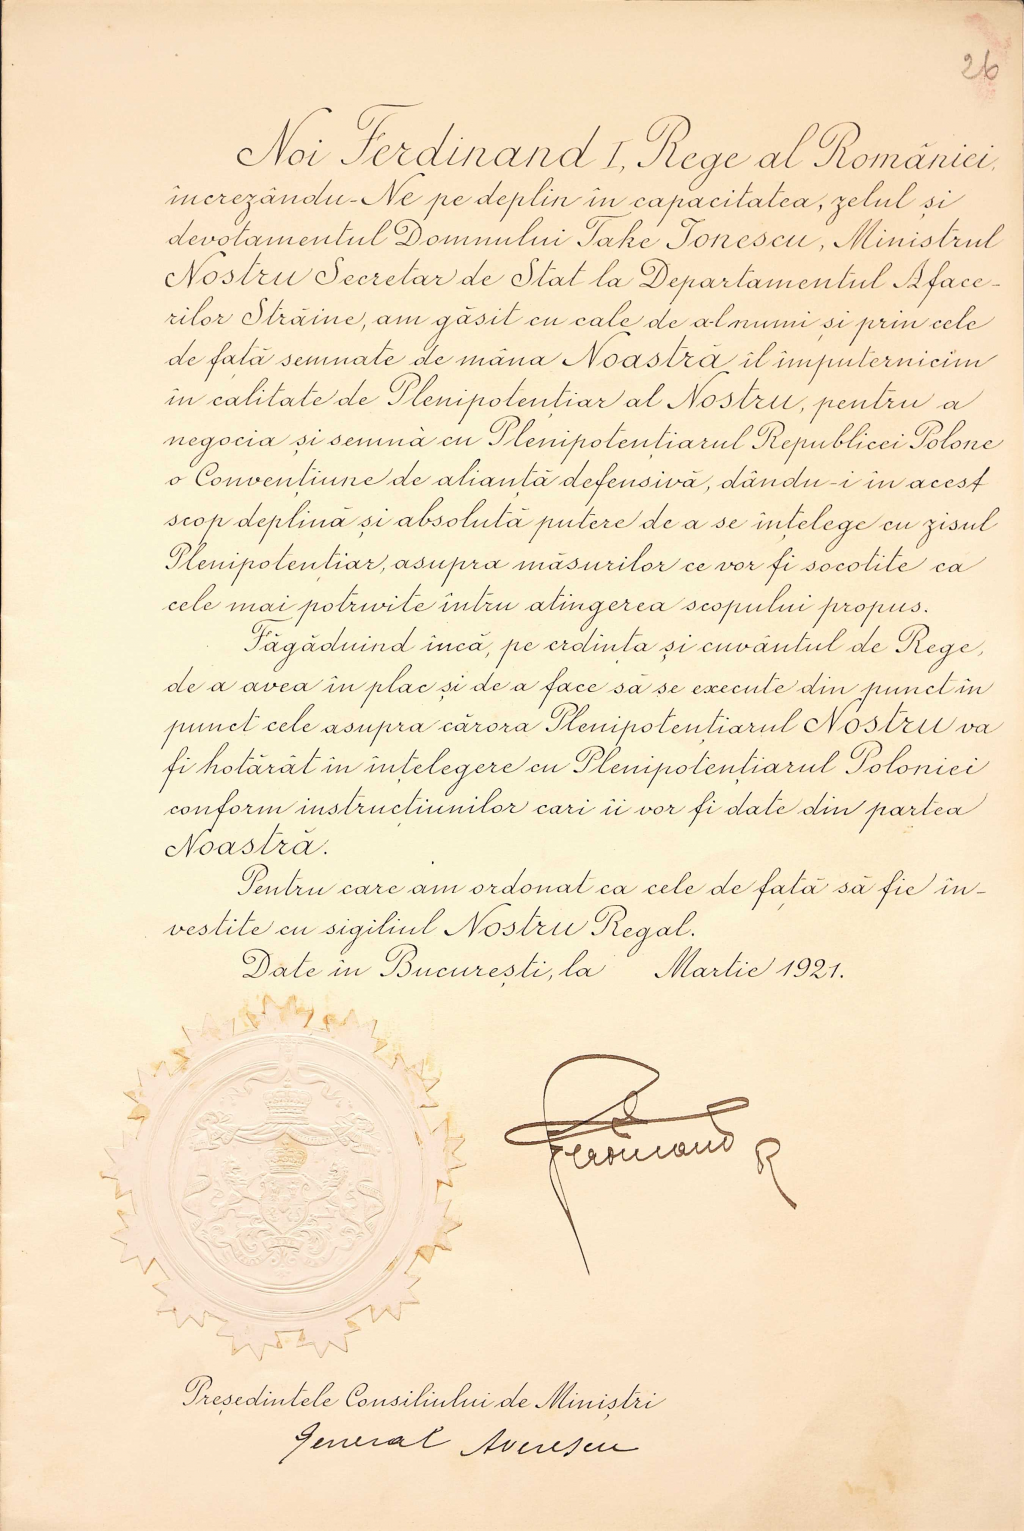 26
Noi Ferdinand I, Rege al României,
încrezându-Ne pe deplin în capacitatea, zelul și
devotamentul Domnului Take Ionescu, Ministrul
Nostru Secretar de Stat la Departamentul Aface-
rilor Străine, am găsit cu cale de a-l numi și prin cele
de față semnate de mâna Noastră îl împuternicim
în calitate de Plenipotențiar al Nostru, pentru a
negocia și semnà cu Plenipotențiarul Republicei Polone
o Convențiune de alianță defensivă, dându-i în acest
scop deplină și absolută putere de a se înțelege cu zisul
Plenipotențiar, asupra măsurilor ce vor fi socotite ca
cele mai potrivite întru atingerea scopului propus.
Făgăduind încă, pe crdința și cuvântul de Rege,
de a avea în plac și de a face să se execute din punct în
punct cele asupra cărora Plenipotențiarul Nostru va
fi hotărât în înțelegere cu Plenipotențiarul Poloniei
conform instrucțiunilor cari îi vor fi date din partea
Noastră.
Pentru care am ordonat ca cele de față să fie în-
vestite cu sigiliul Nostru Regal.
Date în București, la Martie 1921.
Ferdinand R
Președintele Consiliului de Miniștri
General Averescu